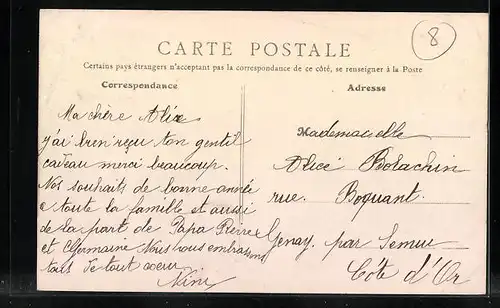 8
CARTE POSTALE
Certains pays étrangers n'acceptant pas la correspondance de ce côté, se renseigner à la Poste
Correspondance
Adresse
Ma chère Alice
j'ai bien reçu ton gentil
cadeau merci beaucoup.
Nos souhaits de bonne année
a toute la famille et aussi
de la part de Papa Pierre
et Germaine Nous vous embrassons
tous de tout coeur
Nini
Mademoiselle
Alice Bolachin
rue. Boquant.
Genay. par Semur
Côte d'Or